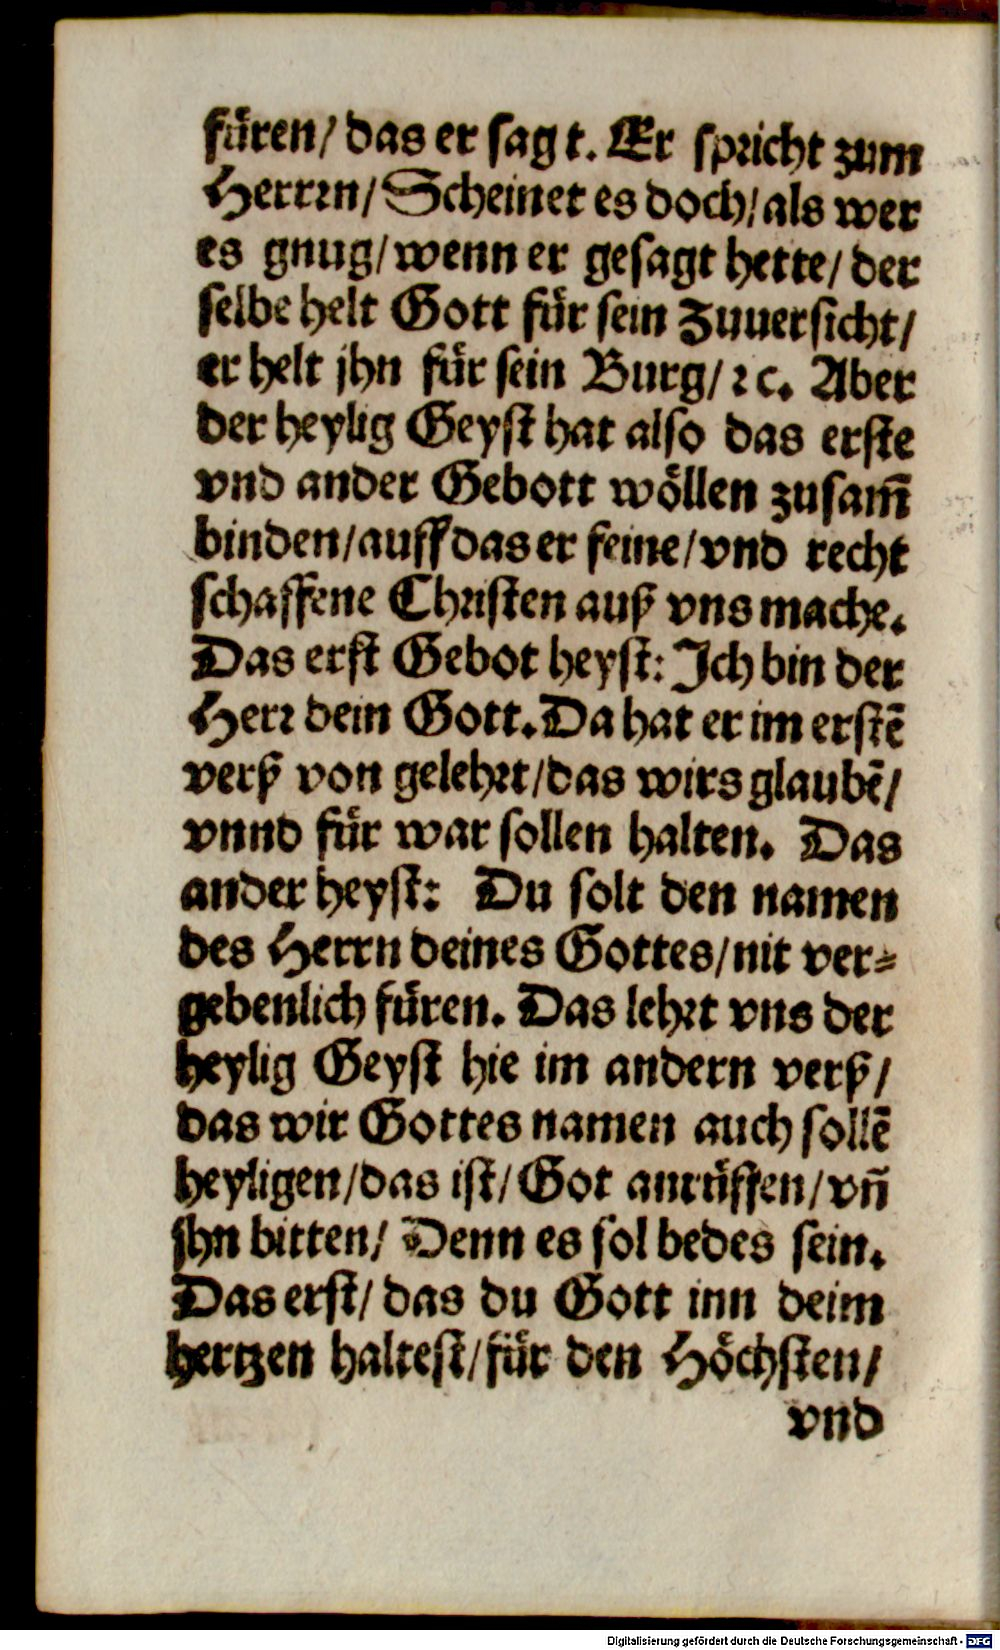 fuͤren/ das er sagt. Er spricht zum
Herrꝛn/ Scheinet es doch/ als wer
es gnug/ wenn er gesagt hette/ der
selbe helt Gott fuͤr sein Zuuersicht/
er helt jhn fuͤr sein Burg/ ꝛc. Aber
der heylig Geyst hat also das erste
vnd ander Gebott woͤllen zusam̃
binden/ auff das er feine/ vnd recht
schaffene Chꝛisten auß vns mache.
Das erst Gebot heyst: Ich bin der
Herꝛ dein Gott. Da hat er im erstẽ
verß von gelehꝛt/ das wirs glaubẽ/
vnnd fuͤr war sollen halten. Das
ander heyst: Du solt den namen
des Herrn deines Gottes/ nit ver⸗
gebenlich fuͤren. Das lehꝛt vns der
heylig Geyst hie im andern verß/
das wir Gottes namen auch sollẽ
heyligen/ das ist/ Got anruͤffen/ vñ
jhn bitten/ Denn es sol bedes sein.
Das erst/ das du Gott inn deim
hertzen haltest/ fuͤr den Hoͤchsten/
vnd
Digitalisierung gefördert durch die Deutsche Forschungsgemeinschaft - DFG